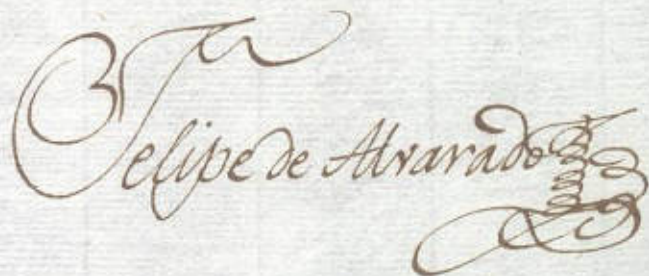 Felipe de Alvarado